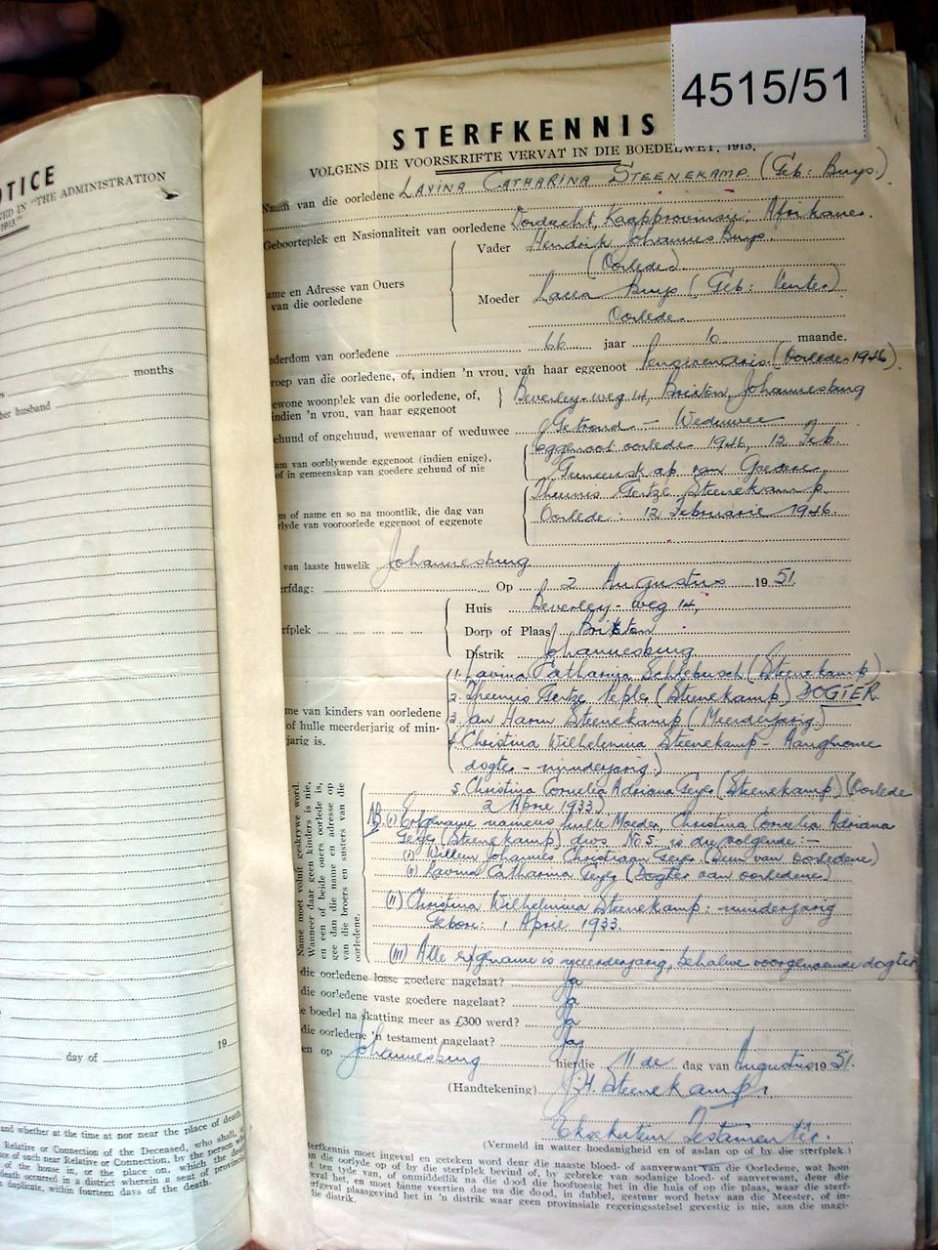 4515/51
STERFKENNIS
VOLGENS DIE VOORSKRIFTE VERVAT IN DIE BOEDELWET, 1913,
Naam van die oorledene LAVINA CATHARINA STEENEKAMP (Geb: Buys)
Geboorteplek en Nasionaliteit van oorledene Dordrecht, Kaapprovinsie: Afrikaner
Vader Hendrik Johannes Buys
(Oorlede)
ame en Adresse van Ouers
van die oorledene
Moeder Buys (Geb: Venter)
Oorlede
derdom van oorledene 66 jaar 10 maande.
roep van die oorledene, of, indien 'n vrou, van haar eggenoot Pensioenaris (Oorlede 1946)
ewone woonplek van die oorledene, of,
indien 'n vrou, van haar eggenoot
Beverley-weg 14, Brixton, Johannesburg
ehuud of ongehuud, wewenaar of weduwee Getroud - Weduwee
am van oorblywende eggenoot (indien enige),
of in gemeenskap van goedere gehuud of nie
Eggenoot oorlede 1946, 12 Feb.
Gemeenskap van Goedere
m of name en so na moontlik, die dag van
rlyde van vooroorlede eggenoot of eggenote
Theunis Gertze Steenekamp
Oorlede: 12 Februarie 1946.
van laaste huwelik Johannesburg
erfdag: Op 2 Augustus 1951
rfplek
Huis Beverley-weg 14,
Dorp of Plaas Brixton
Distrik Johannesburg
me van kinders van oorledene
of hulle meerderjarig of min-
jarig is.
1. Lavina Catharina Schlebusch (Steenekamp)
2. Theunis Gertze Nepler (Steenekamp) DOGTER
3. Jan Harm Steenekamp (Meerderjarig)
4. Christina Wilhelmina Steenekamp - Aangenome
dogter - minderjarig)
5. Christina Cornelia Adriana (Steenekamp) (Oorlede
2 April 1933)
Name moet voluit geskrywe word.
Wanneer daar geen kinders is nie,
en een of beide ouers oorlede is,
gee dan die name en adresse op
van die broers en susters van die
oorledene.
NB. (i) Erfgename namens hulle Moeder, Christina Cornelia Adriana
(Steenekamp) No 5 is die volgende:-
(i) Willem Johannes Christiaan (Seun van oorledene)
(ii) Lavina Catharina (Dogter van oorledene)
(ii) Christina Wilhelmina Steenekamp: minderjarig
Gebore: 1 April 1933.
(iii) Alle erfgename is meerderjarig, behalwe voorgenoemde dogter
die oorledene losse goedere nagelaat? Ja
die oorledene vaste goedere nagelaat? Ja
e boedel na skatting meer as £300 werd? Ja
die oorledene 'n testament nagelaat? Ja
en op Johannesburg hierdie 11 de dag van Augustus 1951.
(Handtekening) J.H. Steenekamp
Eksekuteur Testamentêr.
(Vermeld in watter hoedanigheid en of asdan op of by die sterfplek.)
terfkennis moet ingevul en geteken word deur die naaste bloed- of aanverwant van die Oorledene, wat hom
n die oorlyde op of by die sterfplek bevind of, by gebreke van sodanige bloed- of aanverwant, deur die
OTICE
ED IN "THE ADMINISTRATION
1913"
months
her husband
day of 19
and whether at the time at nor near the place of death.
Relative or Connection of the Deceased, who shall,
ce of such near Relative or Connection, by the person who
of the house in, or the place on, which the
death occurred in a district wherein a seat of provincial
duplicate, within fourteen days of the death.